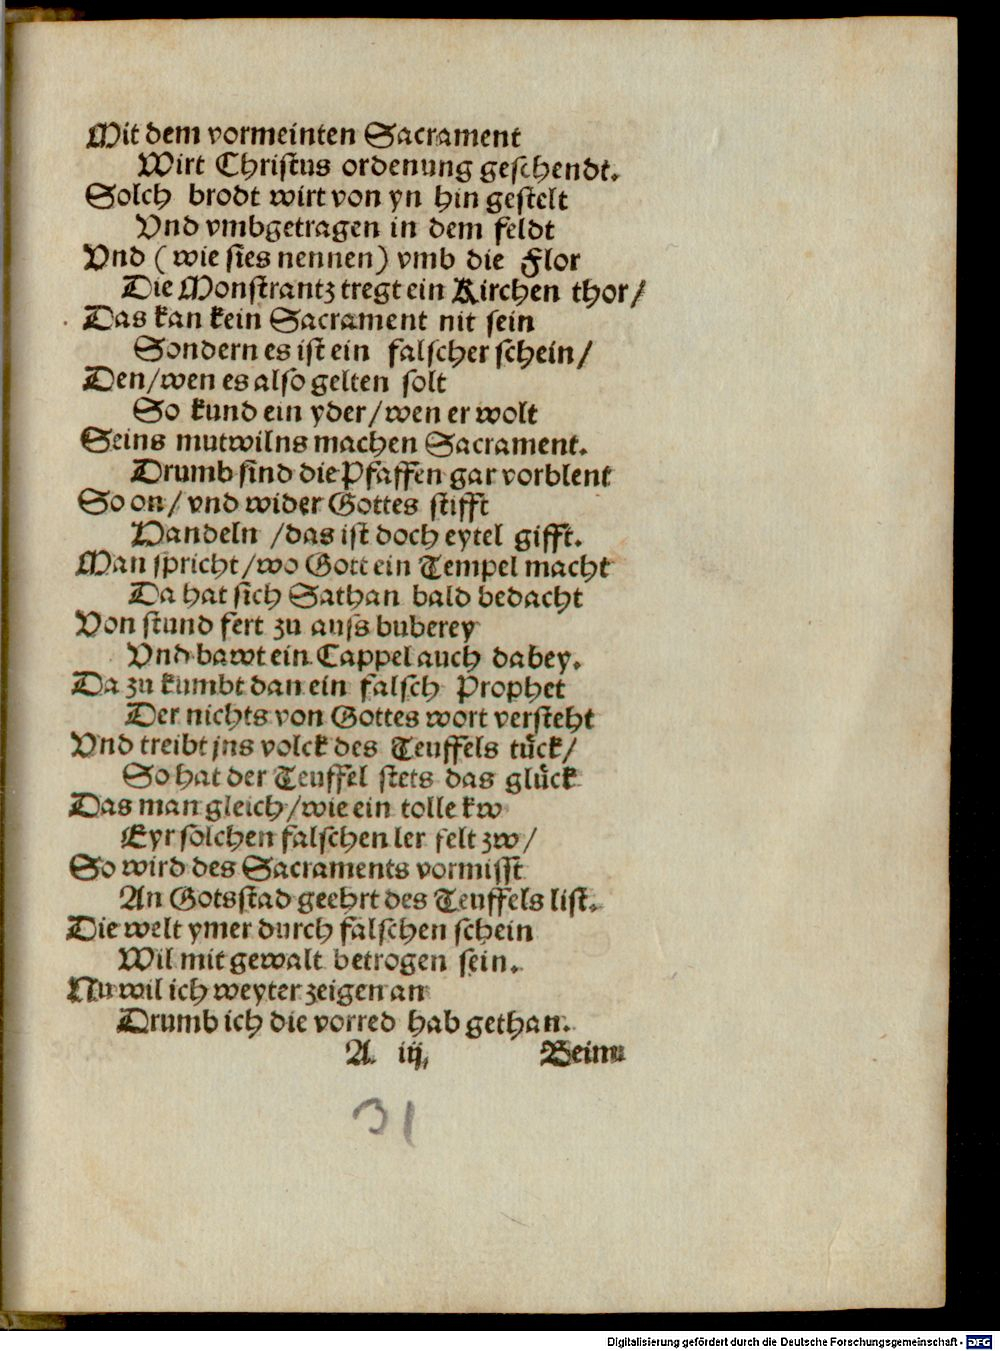 Mit dem vormeinten Sacrament
Wirt Christus ordenung geschendt.
Solch brodt wirt von yn hin gestelt
Vnd vmbgetragen in dem feldt
Vnd (wie sies nennen) vmb die Flor
Die Monstrantz tregt ein Kirchen thor/
Das kan kein Sacrament nit sein
Sondern es ist ein falscher schein/
Den/wen es also gelten solt
So kund ein yder/wen er wolt
Seins mutwilns machen Sacrament.
Drumb sind die Pfaffen gar vorblent
So on/vnd wider Gottes stifft
Handeln /das ist doch eytel gifft.
Man spricht/wo Gott ein Tempel macht
Da hat sich Sathan bald bedacht
Von stund fert zu auss buberey
Vnd bawt ein Cappel auch dabey.
Da zu kumbt dan ein falsch Prophet
Der nichts von Gottes wort versteht
Vnd treibt jns volck des Teuffels tuͤck/
So hat der Teuffel stets das gluͤck
Das man gleich/wie ein tolle kw
Eyr solchen falschen ler felt zw/
So wird des Sacraments vormisst
An Gotsstad geehrt des Teuffels list.
Die welt ymer durch falschen schein
Wil mit gewalt betrogen sein.
Nu wil ich weyter zeigen an
Drumb ich die vorred hab gethan.
A iij. Beinn
31
Digitalisierung gefördert durch die Deutsche Forschungsgemeinschaft - DFG